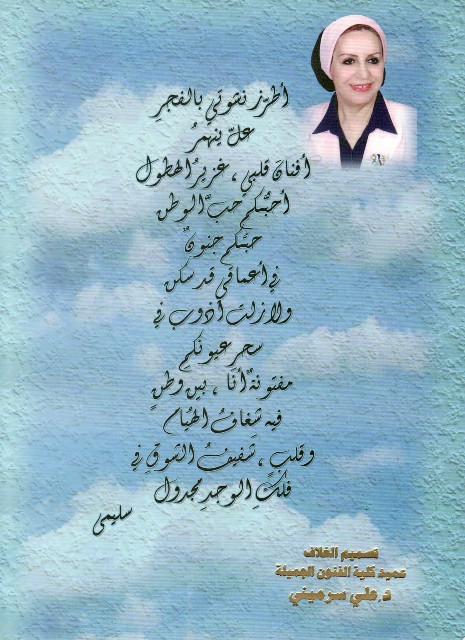 أطرز نشوتي بالفجرِ
علّ ينهمرُ
أفنانَ قلبي ، غزيرُ الهطول
أحبُّكم حبَّ الوطن
حبُّكم جنونٌ
في أعماقي قد سكن
ولازلت أذوب في
سحرِ عيونكم
مفتونةٌ أنا ، بين وطنٍ
فيه شغافُ الهيام
وقلبٍ ، شفيفُ الشوقِ في
فلكِ الوجدِ مجدول
سليمى
تصميم الغلاف
عميد كلية الفنون الجميلة
د.علي سرميني